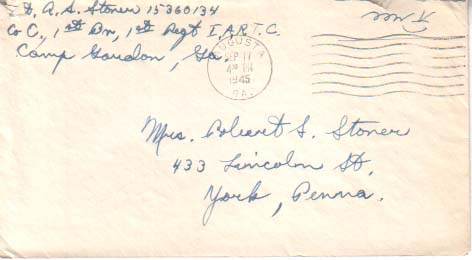 R. S. Stoner 15360134
Co C., 1st Bn, 1st Regt I.A.R.T.C.
Camp Gordon, Ga.
AUGUSTA
SEP 17
4 PM
1945
GA.
Mrs. Robert S. Stoner
433 Lincoln St.
York, Penna.